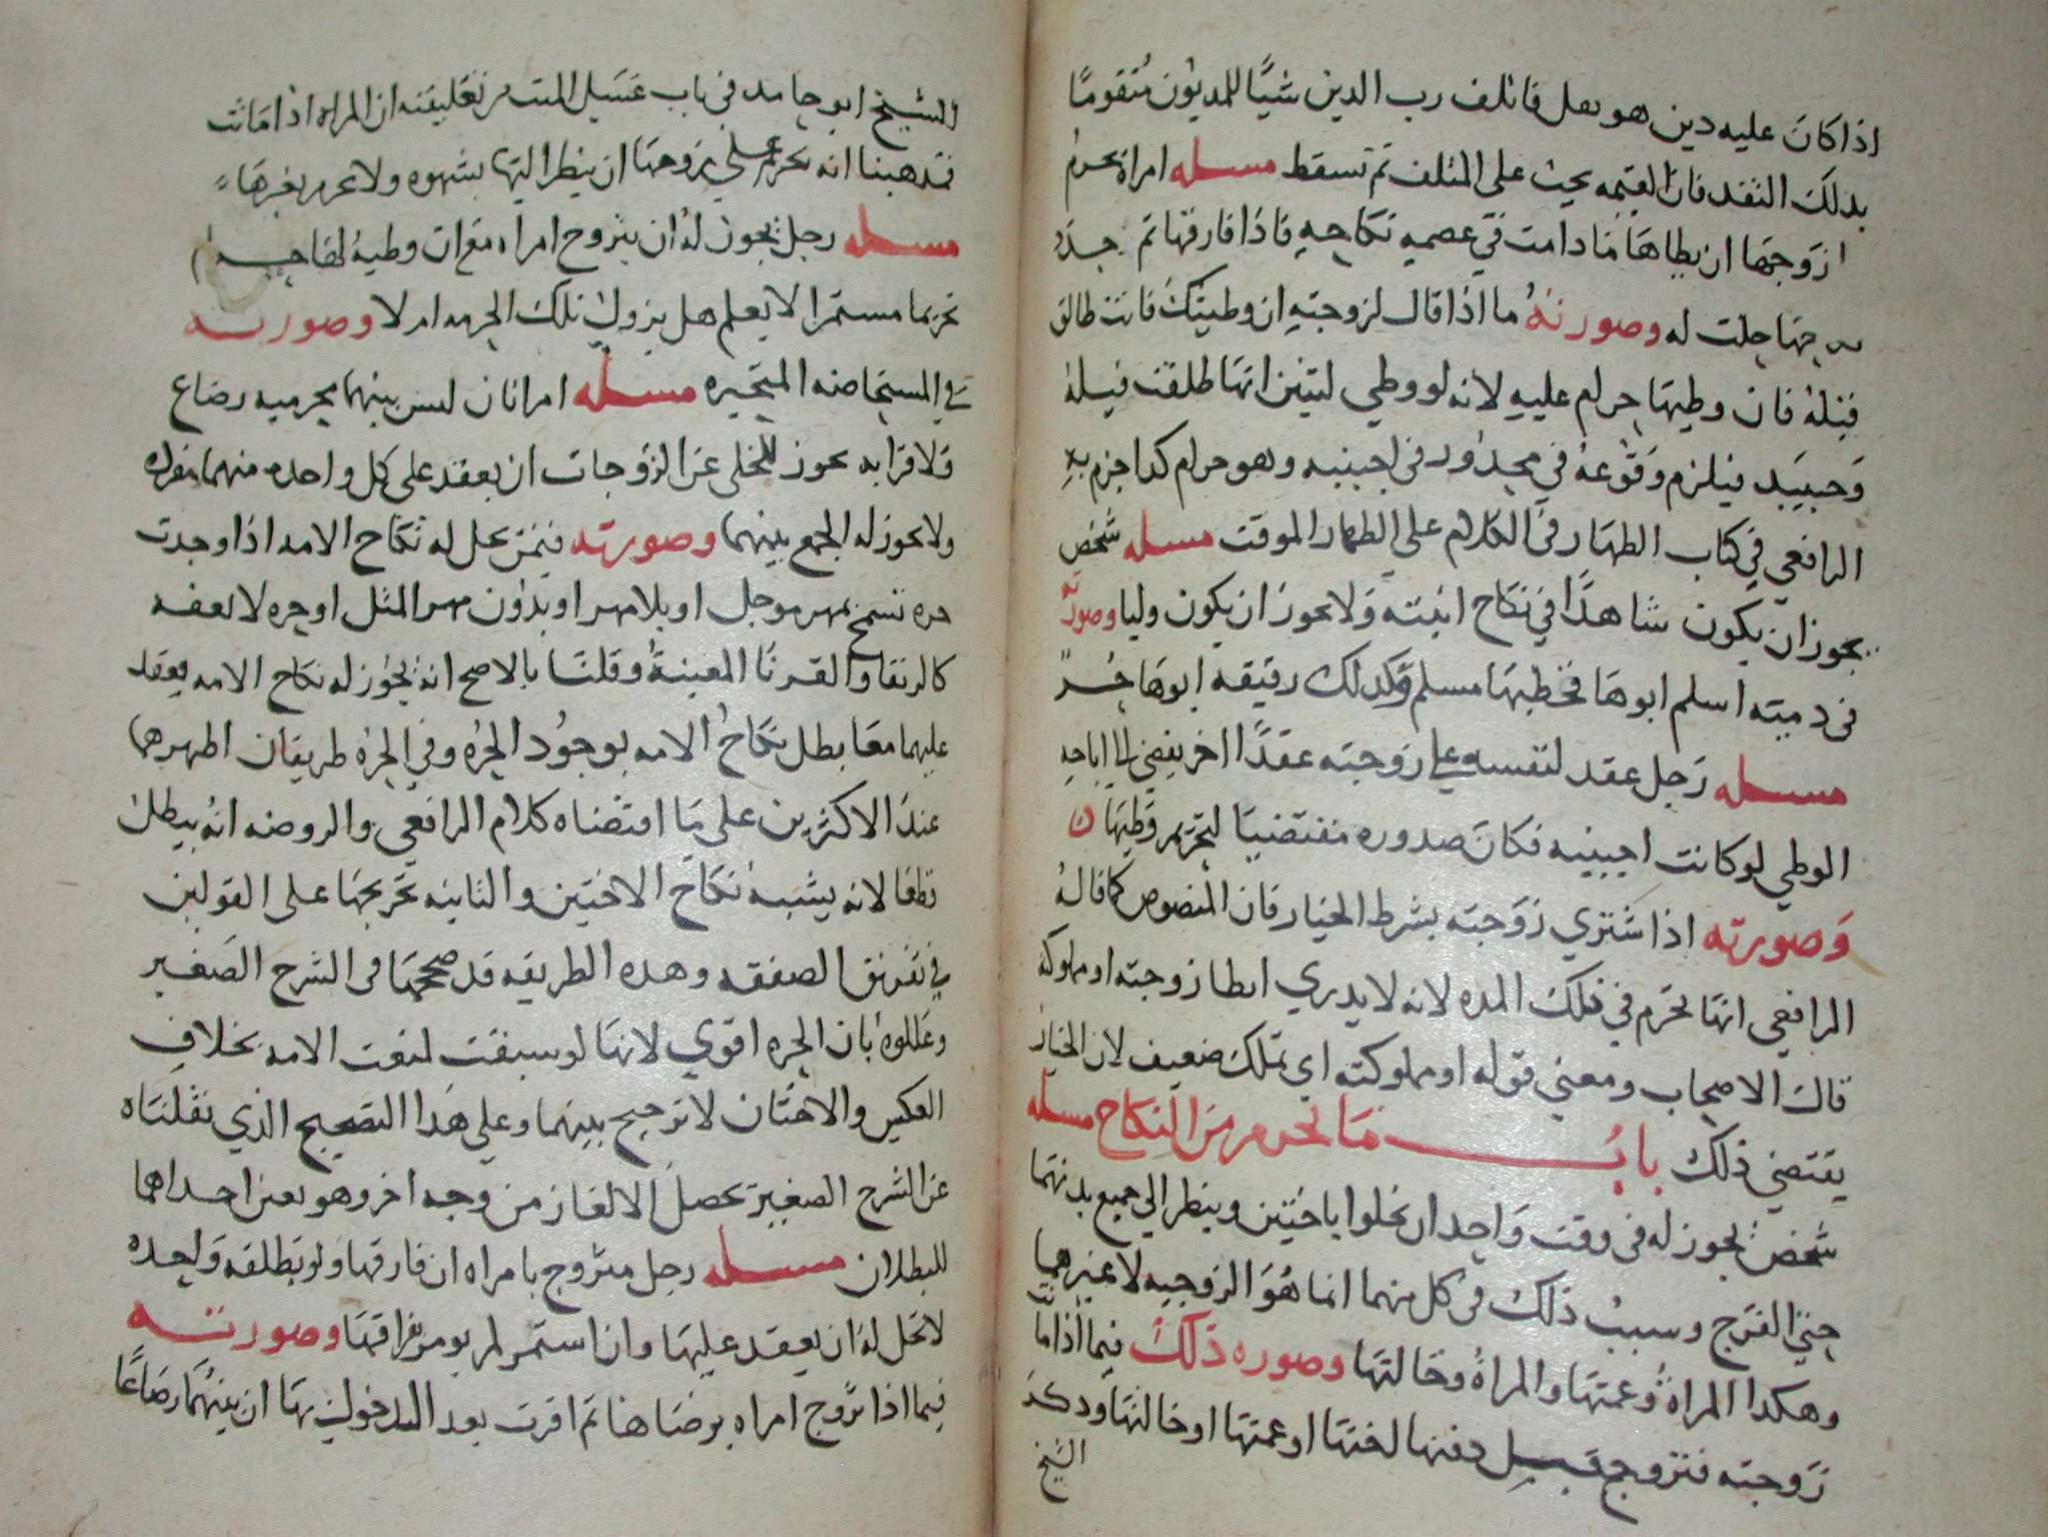 اذا كان عليه دين هو بعل فاتلف رب الدين شيئا للمديون متقوما
بذلك النقد فان القيمه يجب على المتلف ثم تسقط مسله امراه يحرم
ازوجها ان يطاها ما دامت في عصمه نكاحه فاذا فارقها ثم جدد
حلت له وصورته ما اذا قال لزوجته ان وطيتك فانت طالق
قبله فان وطيها حرام عليه لانه لو وطي لتبين انها طلقت قبيله
وحينيد فيلزم وقوعه في محذور في اجنبيه وهو حرام كدا جزم به
الرافعي في كتاب الظهار في الكلام على الظهار الموقت مسله شخص
يجوز ان يكون شاهدا في نكاح ابنته ولا يجوز ان يكون وليا وصورته
في دميته اسلم ابوها فخطبها مسلم وكدلك رقيقه ابوها حر
مسله رجل عقد لنفسه على زوجته عقدا اخر يفضي الى اباحه
الوطي لو كانت اجنبيه فكان صدوره مقتضيا لتحريم وطيها
وصورته اذا اشتري زوجته بشرط الخيار فان المنصوص كما قاله
الرافعي انها تحرم في تلك المده لانه لا يدري ايطا زوجته او مملوكته
قال الاصحاب ومعني قوله او مملوكته اي بملك ضعيف لان الخيار
يقتضي ذلك باب ما يحرم من النكاح مسله
شخص يجوز له في وقت واحد ان يخلوا باختين وينظر الي جميع بدنهما
حتى الفرج وسبب ذلك في كل منهما انما هو الزوجيه لا غيرها
وهكدا المراة وعمتها والمراة وخالتها وصوره ذلك فيما اذا ماتت
زوجته فتزوج قبل دفنها لختها او عمتها او خالتها ودكر
الشيخ
الشيخ ابو حامد في باب غسل الميت من تعليقه ان المراه اذا ماتت
فمدهبنا انه يحرم على زوجها ان ينظر اليها بشهوه ولا يحرم بغيرها
مسله رجل يجوز له ان يتزوج امراه مع ان وطيه لها حرام
تحريما مستمرا لا يعلم هل يزول تلك الحرمه ام لا وصورته
في المستحاضه المتحيره مسله امراتان ليس بينهما محرميه رضاع
ولا قرابه يجوز للخلي عن الزوجات ان يعقد على كل واحده منهما منفرده
ولا يجوز له الجمع بينهما وصورته فيمن يحل له نكاح الامه اذا وجدت
حره تسمح بمهر موجل او بلا مهر او بدون مهر المثل او حره لا تعفه
كالرتقا والقرنا المعيبة وقلنا بالاصح انه يجوز له نكاح الامه يعقد
عليهما معا بطل نكاح الامه بوجود الحره وفي الحره طريقان اظهرهما
عند الاكثرين على ما اقتضاه كلام الرافعي والروضه انه يبطل
قطعا لانه يشبه نكاح الاختين والثانيه تخريجها على القولين
في تفريق الصفقه وهده الطريقه قد صححها في الشرح الصغير
وعللوه بان الحره اقوي لانها لو سبقت لمنعت الامه بخلاف
العكس والاختان لا ترجيح بينهما وعلي هدا التصحيح الذي نقلناه
عن الشرح الصغير يحصل الالغاز من وجه اخر وهو تعين احداهما
للبطلان مسله رجل متزوج بامراه ان فارقها ولو بطلقه واحده
لا تحل له ان يعقد عليها وان استمر لم يومر بفراقها وصورته
فيما اذا تزوج امراه برضاها ثم اقرت بعد الدخول بها ان بينهما رضاعا